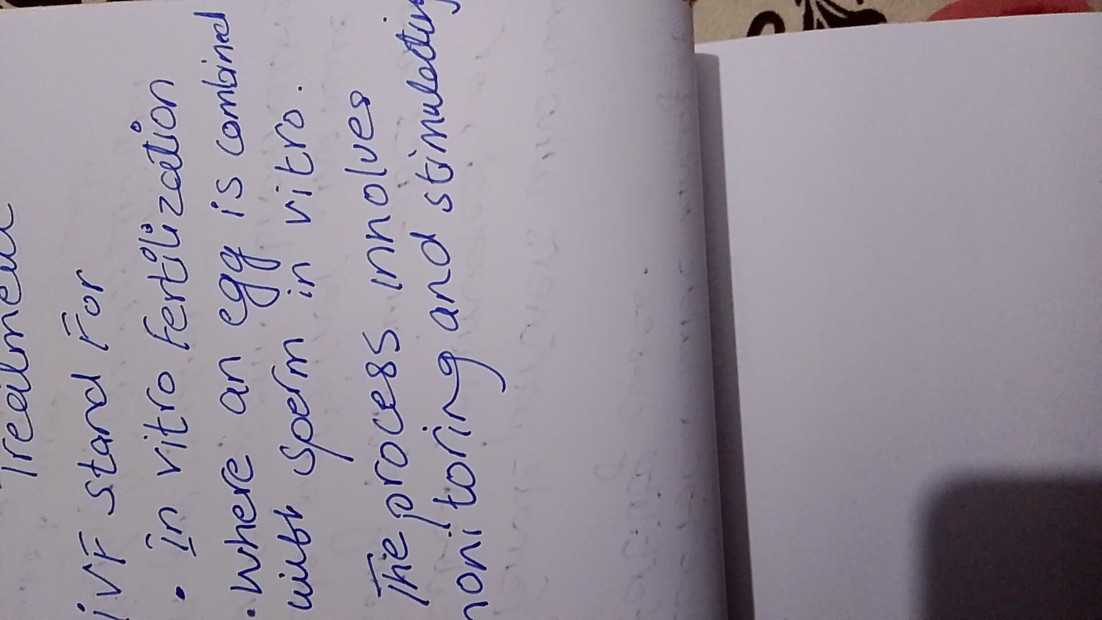 Treatment
IVF stand For
• In vitro Fertilization
• Where an egg is combined
with sperm in vitro.
The process involves
monitoring and stimulating